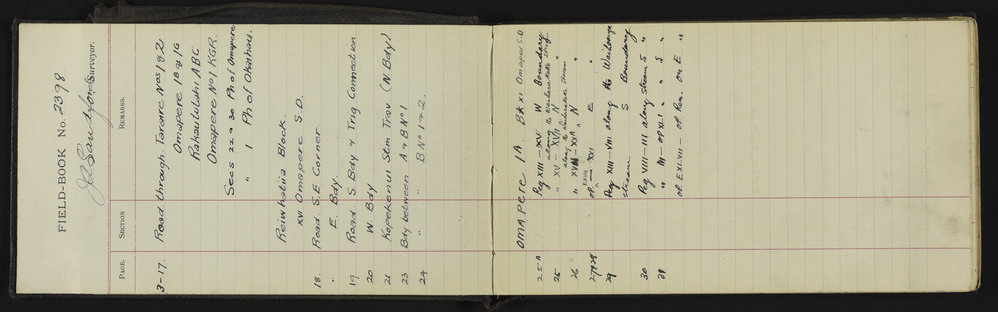 FIELD-BOOK No. 2398
Surveyor.
PAGE. SECTION REMARKS.
3-17. Road through Taraire Nos 1 & 2
Omapere 1B & 1G
Rakautuhahi ABC
Omapere No 1 KGR.
Secs 22 → 30 Ph of Omapere
" 1 Ph of Okaihau.
Reiwhatiia Block.
XVI Omapere S.D.
18. Road S.E Corner
" E. Bdy.
19 Road. S Bdy & Trig Connection
20 W Bdy
21 Kopekenui Stm Trav (N Bdy)
23 Bdy between A & B No 1
24 " B No 1 → 2.
OMAPERE 1A. Blk XI Omapere S.D.
25A Peg XIII — XV W Boundary
along to
25 " XV — XVII N "
along to
26 " N "
27 & 28 E "
29 Peg XIII - VIII along the
stream S Boundary
30 Peg VIII — III along stream S "
31 " III — S "
on E "